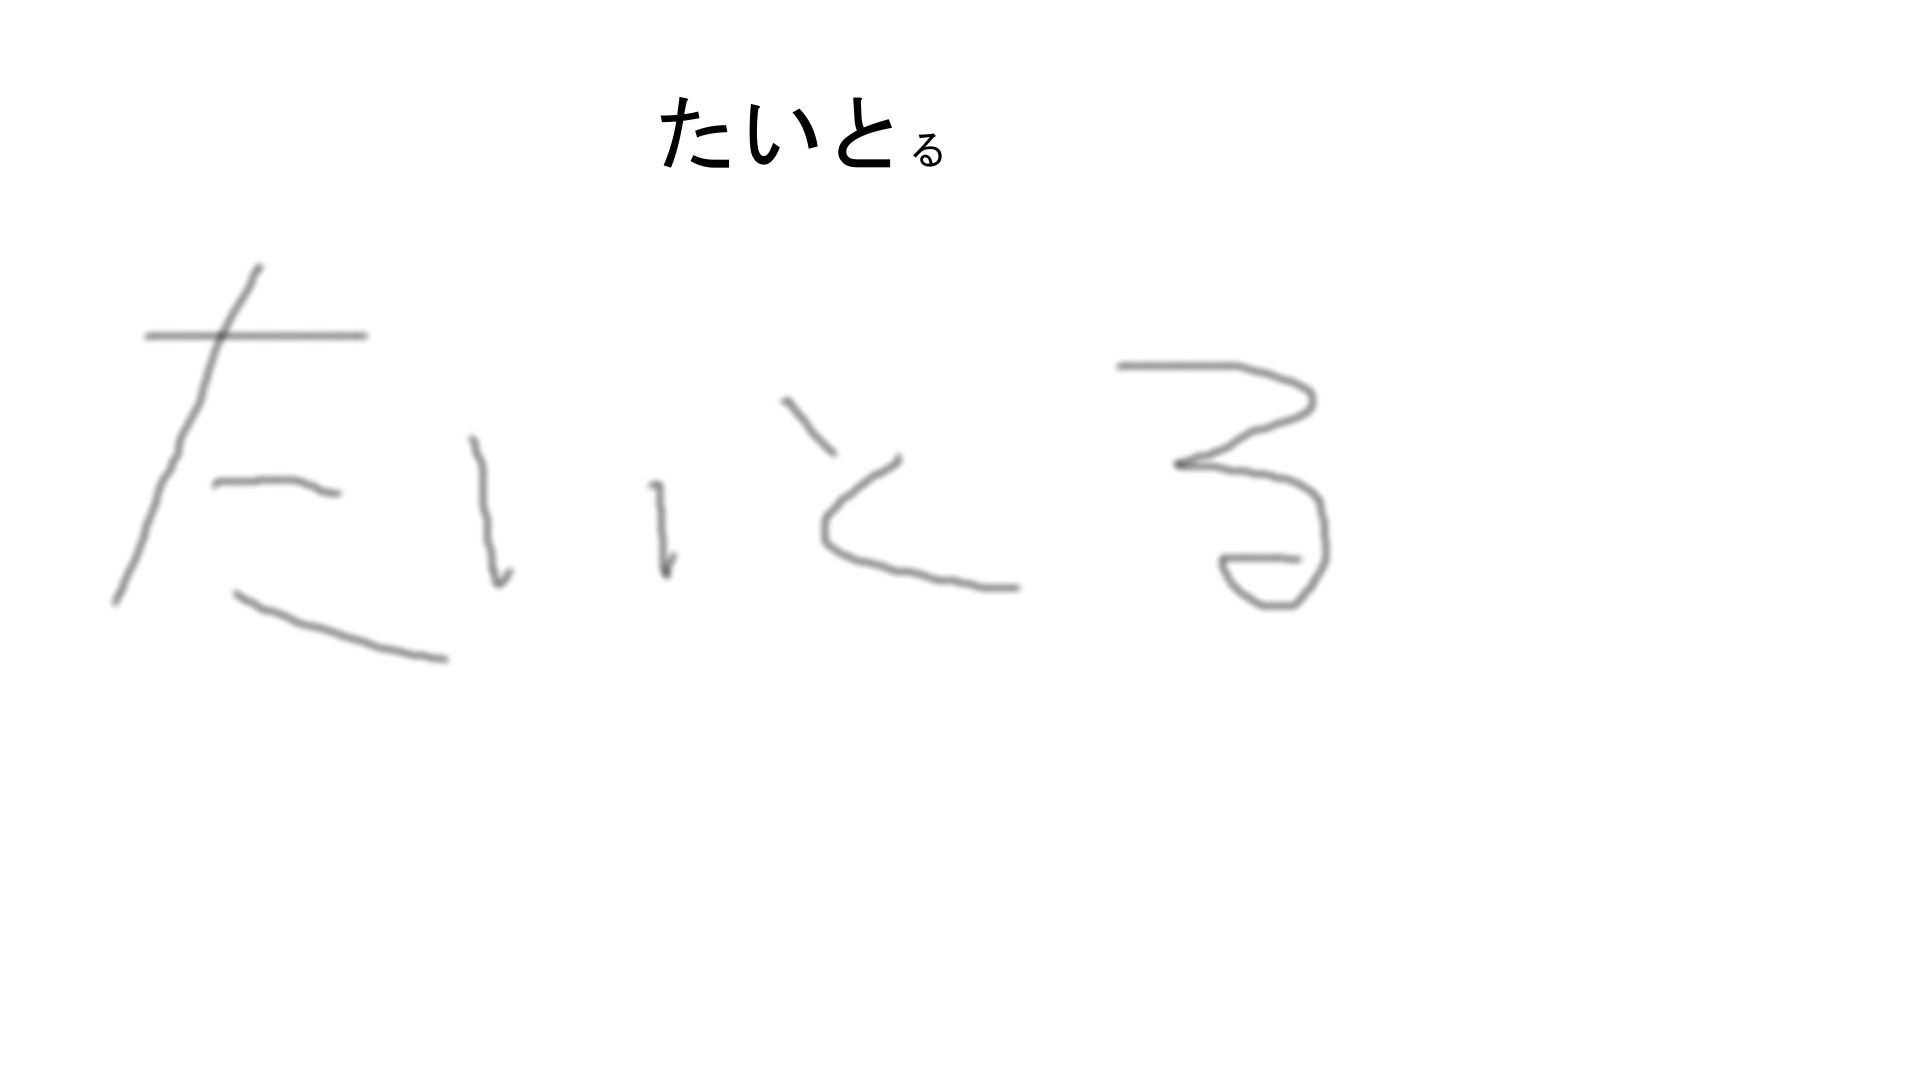 たいとる
たいとる